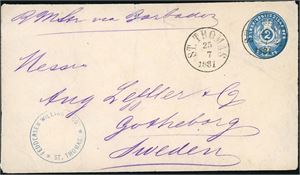 via Barbados
ST. THOMAS
25
7
1881
2
Messrs
Aug Leffler & Co
Gotheborg
Sweden
FEDDERSEN WILLINK
ST. THOMAS